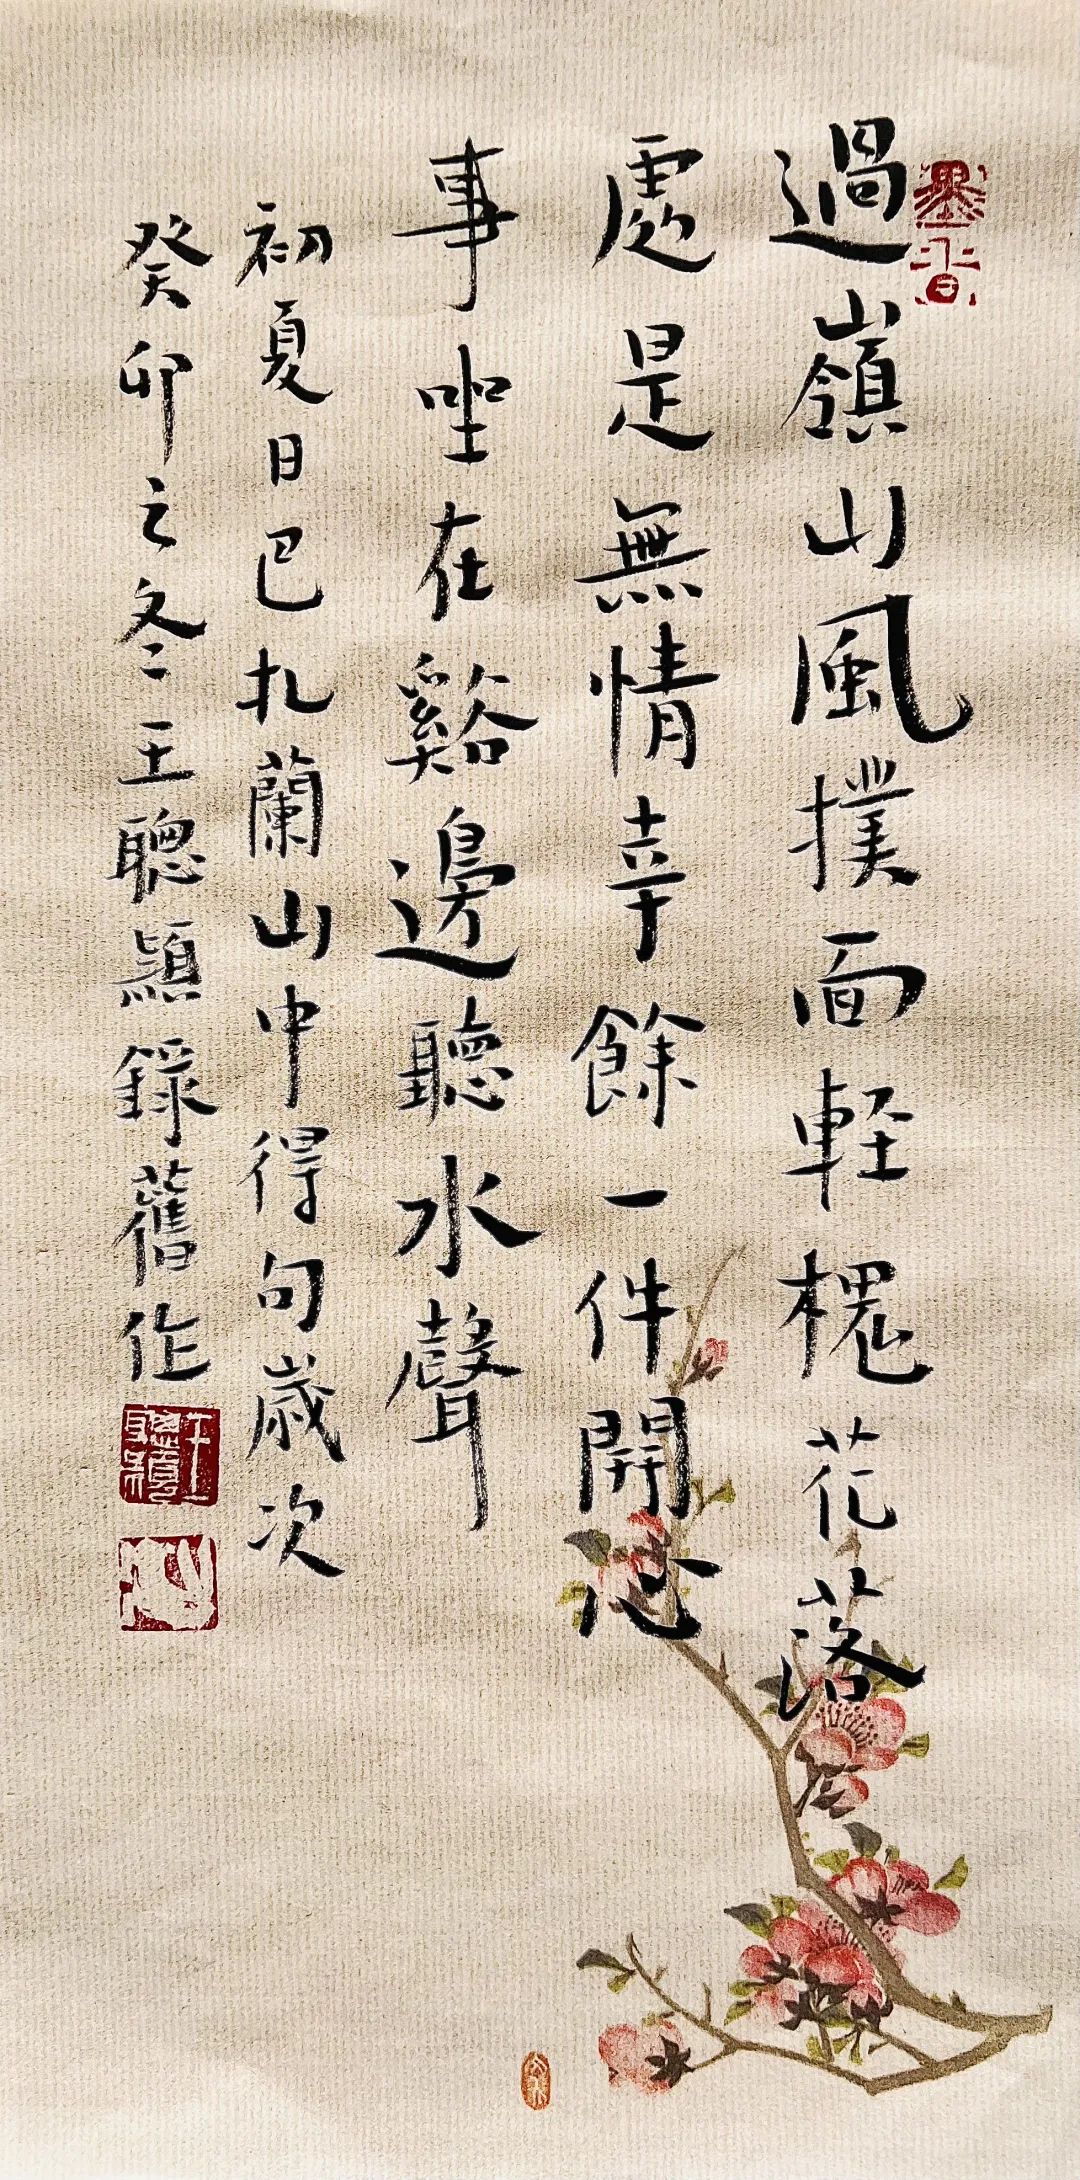 過嶺山風撲面軽槐花落
處是無情幸餘一件開心
事坐在谿邊聽水聲
初夏日巴扎蘭山中得句歲次
癸卯之冬王聰顯錄舊作
墨香